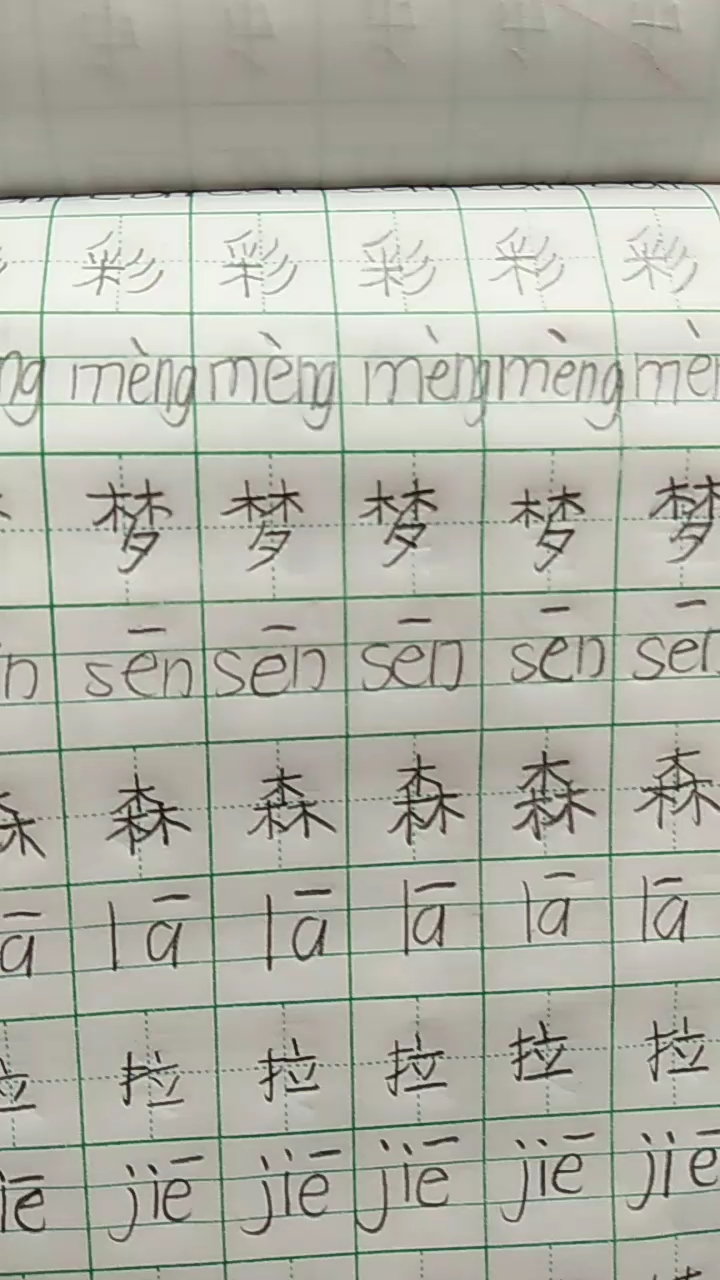 彩 彩 彩 彩 彩
ng mèng mèng mèng mèng mèn
梦 梦 梦 梦 梦
n sēn sēn sēn sēn sēn
森 森 森 森 森 森
ā lā lā lā lā lā
拉 拉 拉 拉 拉 拉
iē jiē jiē jiē jiē jiē